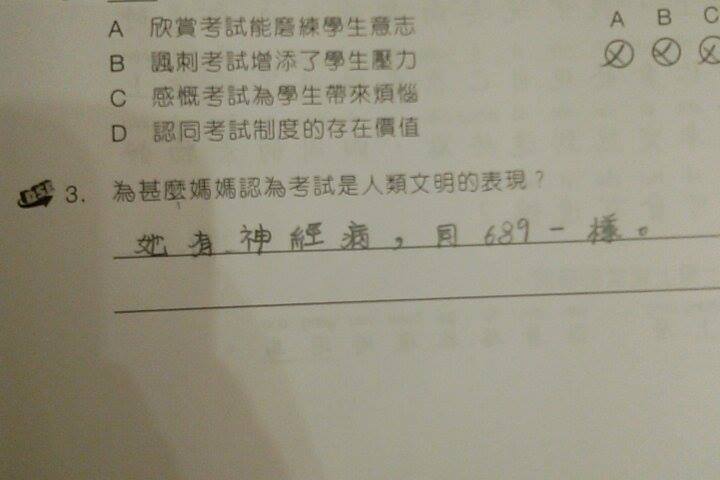 A 欣賞考試能磨練學生意志
B 諷刺考試增添了學生壓力
C 感慨考試為學生帶來煩惱
D 認同考試制度的存在價值
A B C
3. 為甚麼媽媽認為考試是人類文明的表現？
她有神經病，同689一樣。